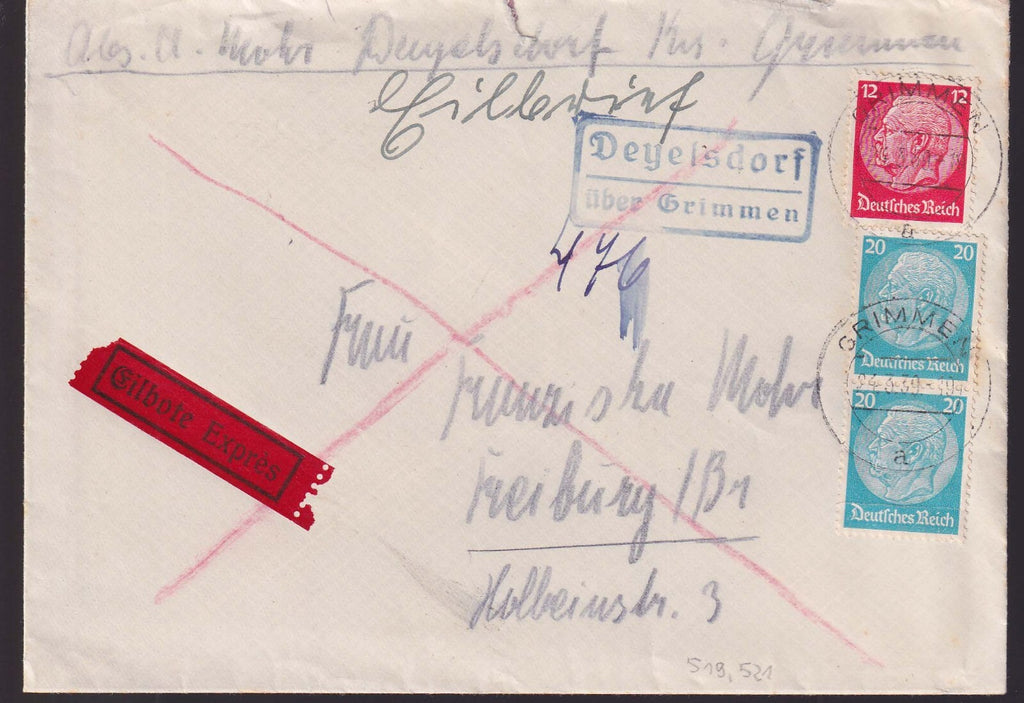 Abs. A. Mohr Deyelsdorf Krs. Grimmen
Eilbrief
Deyelsdorf
über Grimmen
476
12 12
Deutsches Reich
GRIMMEN
a
20 20
Deutsches Reich
GRIMMEN
24.4.39
a
20 20
Deutsches Reich
Eilbote Exprès
Frau
Franziska Mohr
Freiburg /Br
Holbeinstr. 3
519, 521